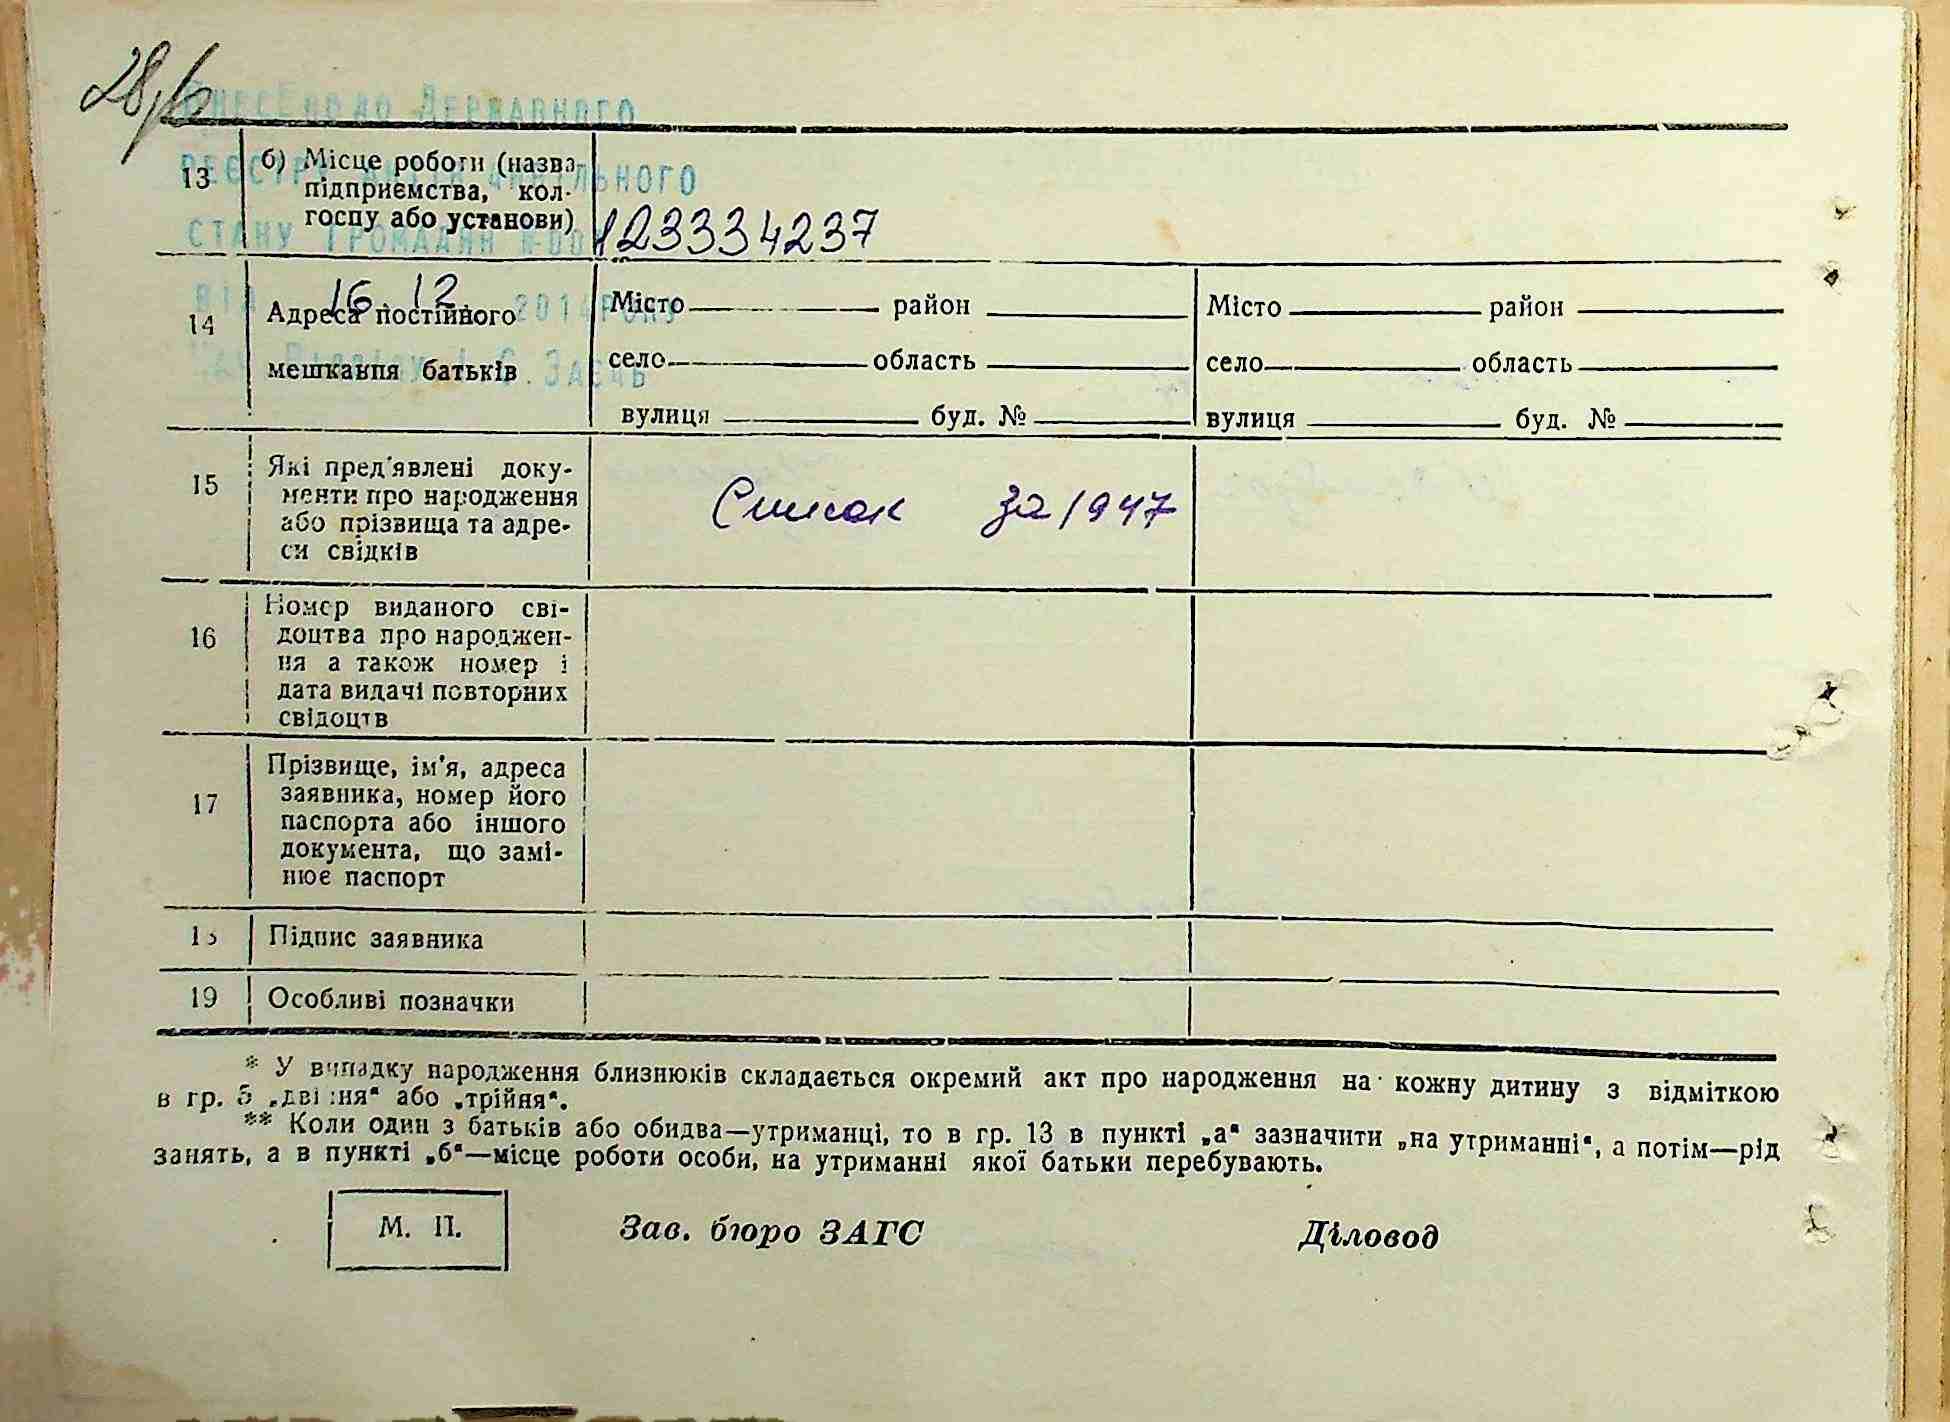 28/6
Внесено до Державного
реєстру актів цивільного
стану громадян №00123334237
від 16.12. 2014 року
13 б) Місце роботи (назва
підприємства, кол-
госпу або установи)
14 Адреса постійного
мешкання батьків
Місто район
село область
вулиця буд. №
Місто район
село область
вулиця буд. №
15 Які пред'явлені доку-
менти про народження
або прізвища та адре-
си свідків
Список за 1947
16 Номер виданого сві-
доцтва про народжен-
ня а також номер і
дата видачі повторних
свідоцтв
17 Прізвище, ім'я, адреса
заявника, номер його
паспорта або іншого
документа, що замі-
нює паспорт
18 Підпис заявника
19 Особливі позначки
* У випадку народження близнюків складається окремий акт про народження на кожну дитину з відміткою
в гр. 5 „двійня“ або „трійня“.
** Коли один з батьків або обидва—утриманці, то в гр. 13 в пункті „а“ зазначити „на утриманні“, а потім—рід
занять, а в пункті „б“—місце роботи особи, на утриманні якої батьки перебувають.
М. П.
Зав. бюро ЗАГС
Діловод